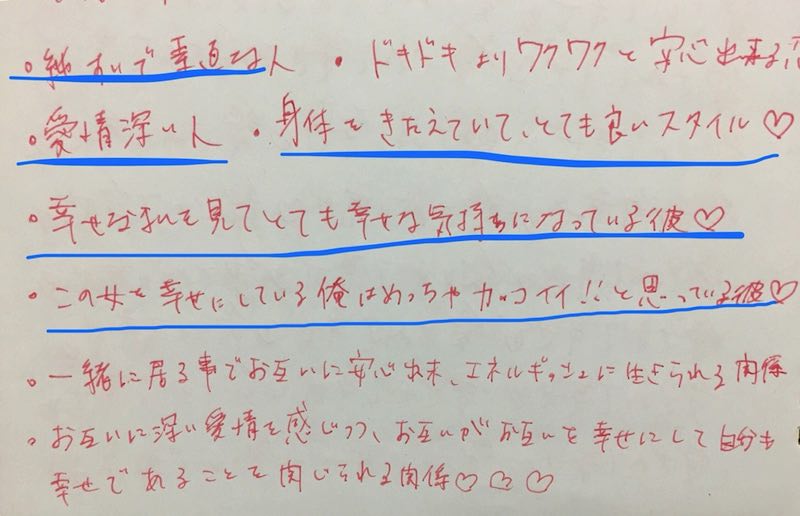 ・純すいで素直な人 ・ドキドキよりワクワクと安心出来る
・愛情深い人 ・身体をきたえていて、とても良いスタイル♡
・幸せな私を見てとても幸せな気持ちになっている彼♡
・この女を幸せにしている俺はめっちゃカッコイイ!!と思っている彼♡
・一緒に居る事でお互いに安心出来、エネルギッシュに生きられる関係
・お互いに深い愛情を感じつつ、お互いがお互いを幸せにして自分も
幸せであることを感じられる関係♡♡♡